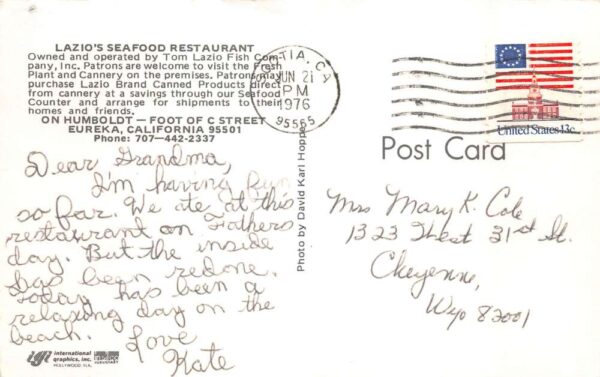 LAZIO'S SEAFOOD RESTAURANT
Owned and operated by Tom Lazio Fish Com-
pany, Inc. Patrons are welcome to visit the Fresh
Plant and Cannery on the premises. Patrons may
purchase Lazio Brand Canned Products direct
from cannery at a savings through our Seafood
Counter and arrange for shipments to their
homes and friends.
ON HUMBOLDT — FOOT OF C STREET
EUREKA, CALIFORNIA 95501
Phone: 707-442-2337
Dear Grandma,
I'm having fun
so far. We ate at this
restaurant on Fathers
day. But the inside
has been redone.
Today has been a
relaxing day on the
beach. Love
Kate
igi international
graphics, inc.
HOLLYWOOD FLA.
Photo by David Karl Hoppe
TIA, CA
JUN 21
PM
1976
95565
United States 13c
Post Card
Mrs Mary K. Cole
1323 West 31st St.
Cheyenne,
Wyo 82001